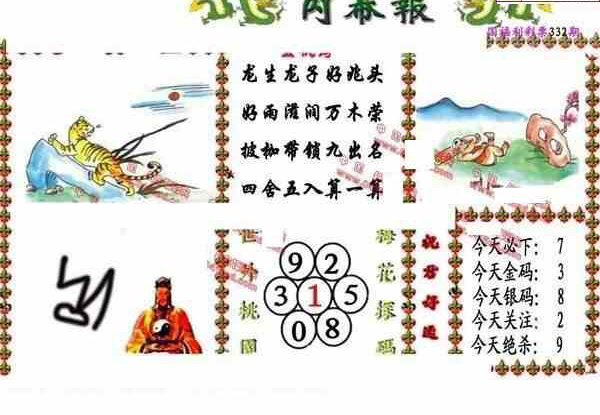 内幕報
国福利彩票332期
龙生龙子好兆头
好雨滋润万木荣
披枷带锁九出名
四舍五入算一算
世外桃园
9 2
3 1 5
0 8
梅花探码
祝君好运
今天必下： 7
今天金码： 3
今天银码： 8
今天关注： 2
今天绝杀： 9